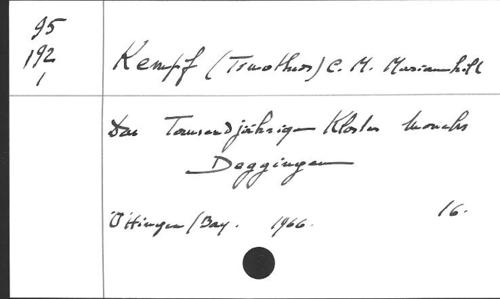 95
192
1
Kempf (Timotheus) C. M. Mariannhill
Das Tausendjährige Kloster Mönchs
Deggingen
Öttingen/Bay. 1966.
16.